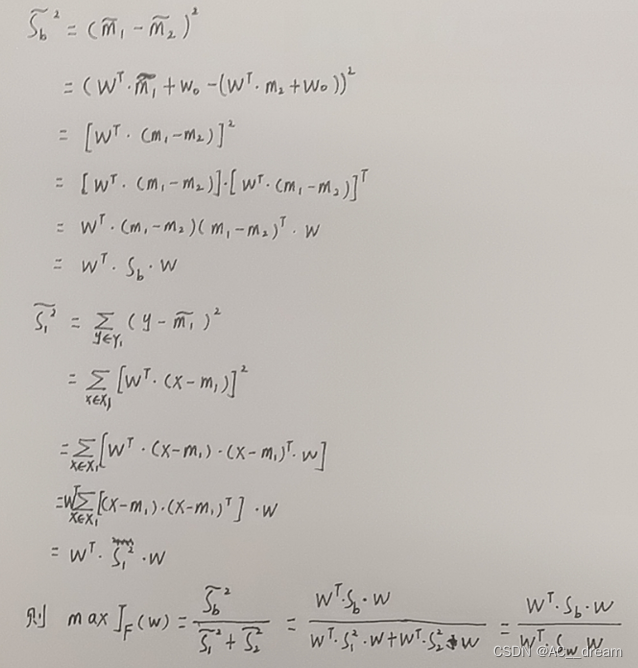 S̃_b² = (m̃₁ - m̃₂)²
= (Wᵀ·m̃₁ + w₀ - (Wᵀ·m₂ + w₀))²
= [Wᵀ·(m₁-m₂)]²
= [Wᵀ·(m₁-m₂)]·[Wᵀ·(m₁-m₂)]ᵀ
= Wᵀ·(m₁-m₂)(m₁-m₂)ᵀ·W
= Wᵀ·S_b·W
S̃₁² = Σ_{y∈Y₁} (y - m̃₁)²
= Σ_{x∈X₁} [Wᵀ·(x-m₁)]²
= Σ_{x∈X₁} [Wᵀ·(x-m₁)·(x-m₁)ᵀ·W]
= Wᵀ Σ_{x∈X₁} [(x-m₁)·(x-m₁)ᵀ]·W
= Wᵀ·S₁²·W
则 max J_F(w) = S̃_b² / (S̃₁² + S̃₂²) = Wᵀ·S_b·W / (Wᵀ·S₁²·W + Wᵀ·S₂²·W) = Wᵀ·S_b·W / (Wᵀ·S_w·W)